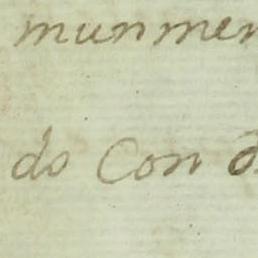 munmen
do Con